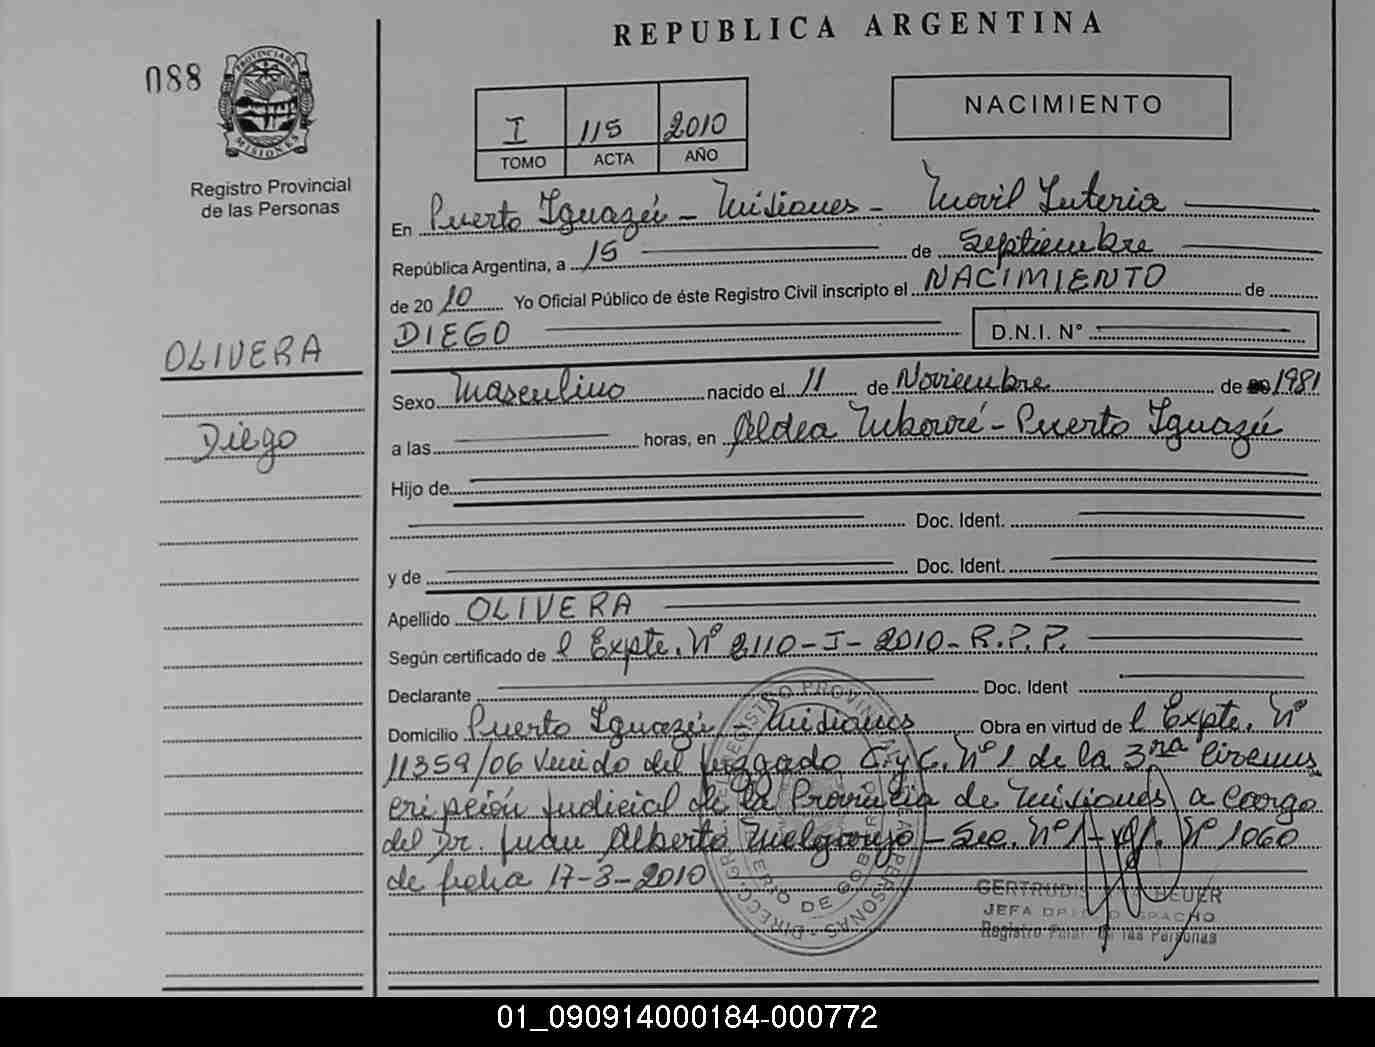 REPUBLICA ARGENTINA
088
PROVINCIA DE MISIONES
Registro Provincial
de las Personas
I 115 2010
TOMO ACTA AÑO
NACIMIENTO
En Puerto Iguazú - Misiones - Movil Interia
República Argentina, a 15 de Septiembre
de 2010 Yo Oficial Público de éste Registro Civil inscripto el NACIMIENTO de
DIEGO D.N.I. N°
OLIVERA
Diego
Sexo Masculino nacido el 11 de Noviembre de 1981
a las horas, en Aldea Yuborré - Puerto Iguazú
Hijo de
Doc. Ident.
y de Doc. Ident.
Apellido OLIVERA
Según certificado de l Expte. N° 2110-I-2010-R.P.P.
Declarante Doc. Ident
Domicilio Puerto Iguazú - Misiones Obra en virtud de l Expte. N°
11359/06 Venido del Juzgado C. y C. N° 1 de la 3ra Circuns
cripción Judicial de la Provincia de Misiones a cargo
del Dr. Juan Alberto - Sec. N° 1 - N° 1060
de fecha 17-3-2010
GERTRUDIS HEUER
JEFA DESPACHO
Registro de las Personas
01_090914000184-000772